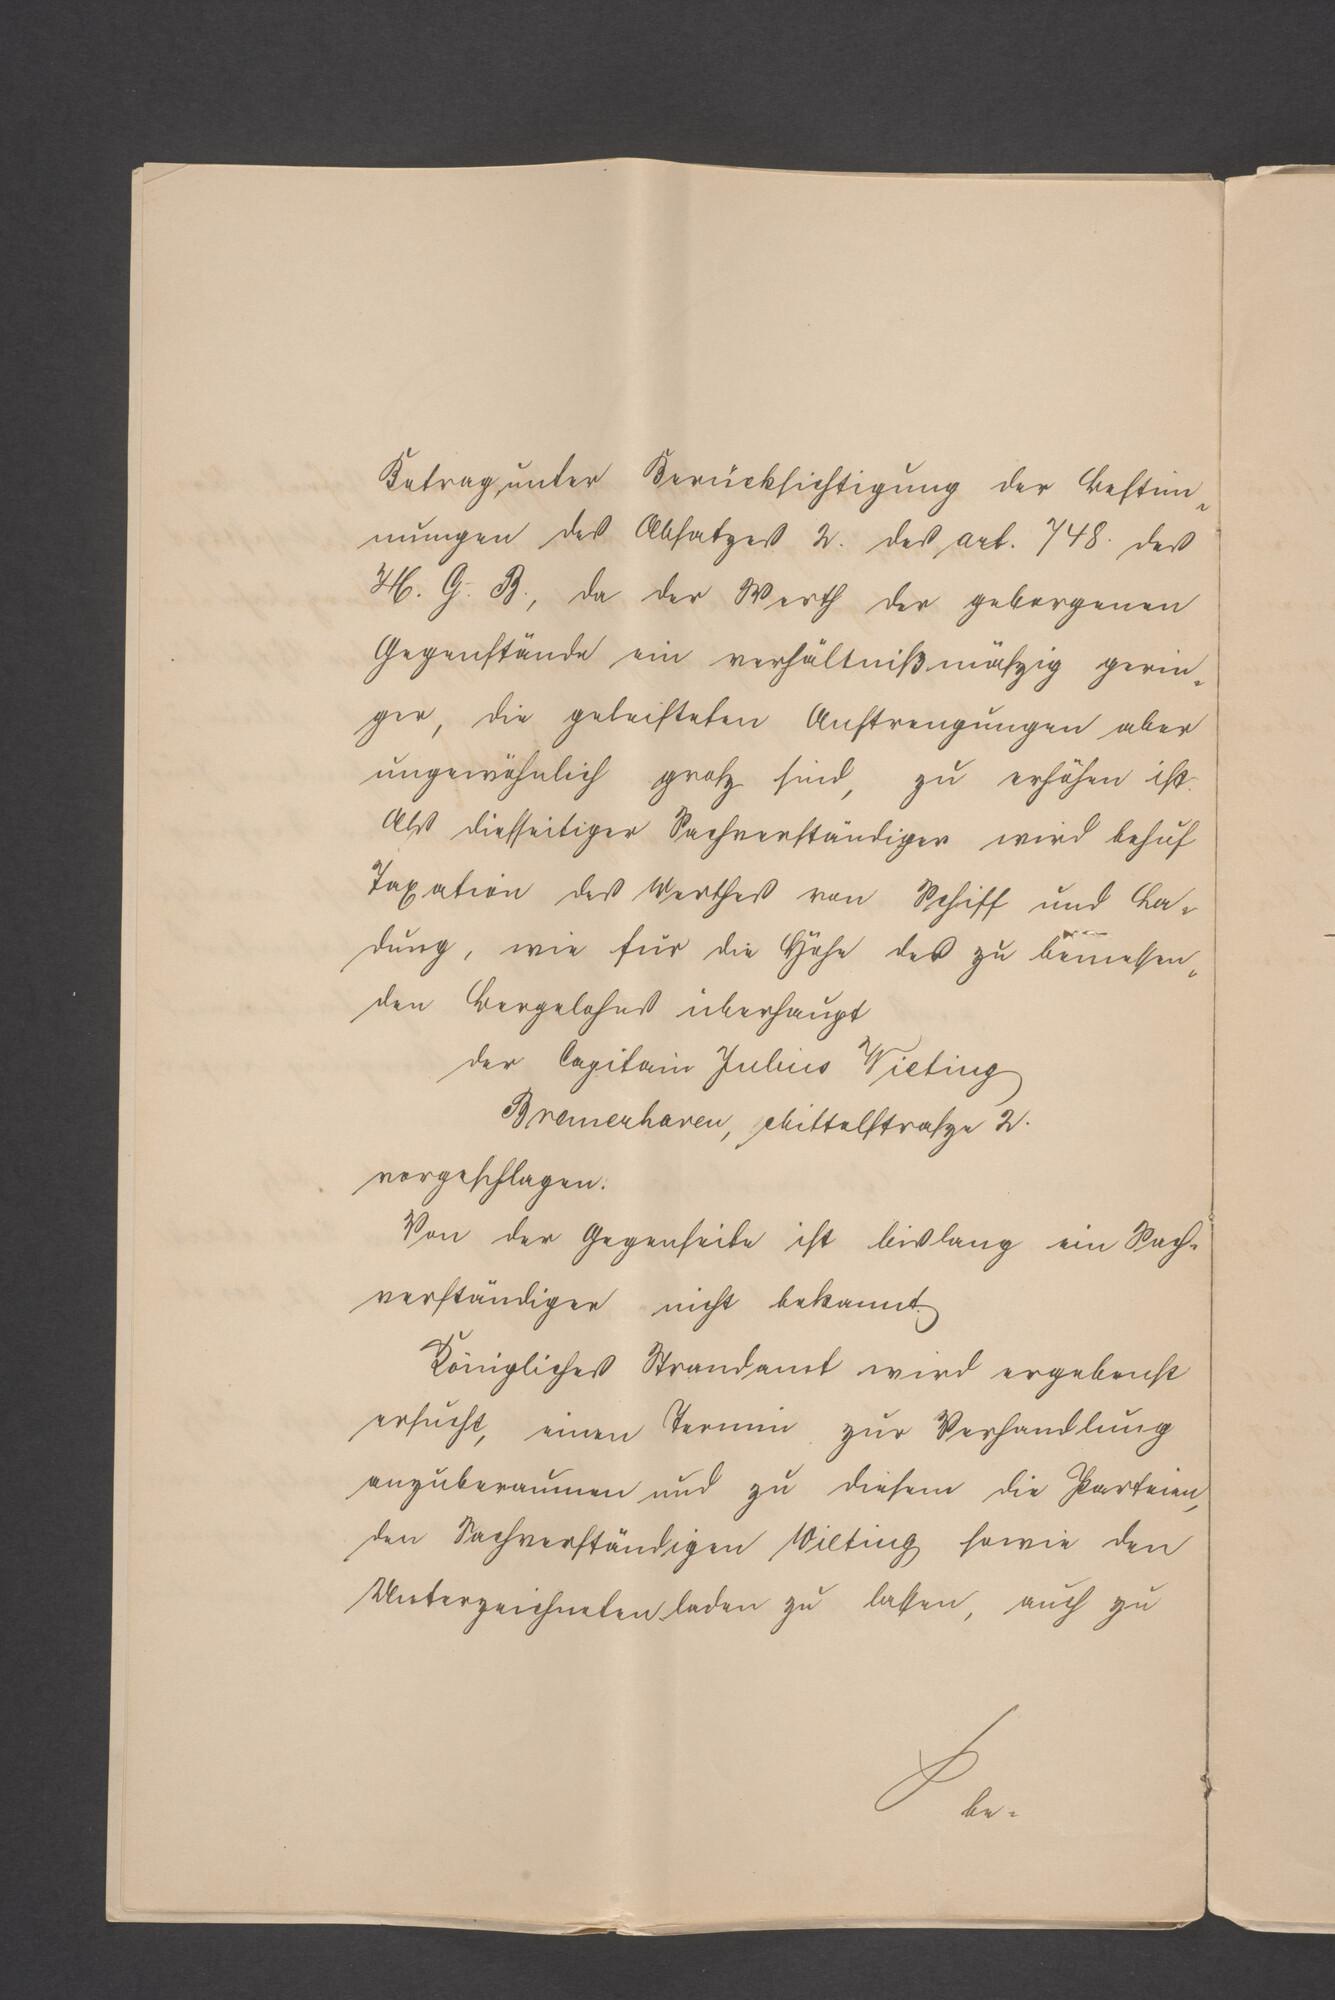 Betrag, unter Berücksichtigung der Bestim-
mungen des Absatzes 2. des Art. 748. des
H. G. B., da der Werth der geborgenen
Gegenstände ein verhältnißmäßig gerin-
ger, die geleisteten Anstrengungen aber
ungewöhnlich groß sind, zu erhöhen ist.
Als diesseitiger Sachverständiger wird behuf
Taxation des Werthes von Schiff und La-
dung, wie für die Höhe des zu bemessen-
den Bergelohns überhaupt
der Capitain Julius Wieting
Bremerhaven, Mittelstraße 2.
vorgeschlagen.
Von der Gegenseite ist bislang ein Sach-
verständiger nicht bekannt.
Königliches Strandamt wird ergebenst
ersucht, einen Termin zur Verhandlung
anzuberaumen und zu diesem die Parteien,
den Sachverständigen Wieting sowie den
Unterzeichneten laden zu lassen, auch zu
be-